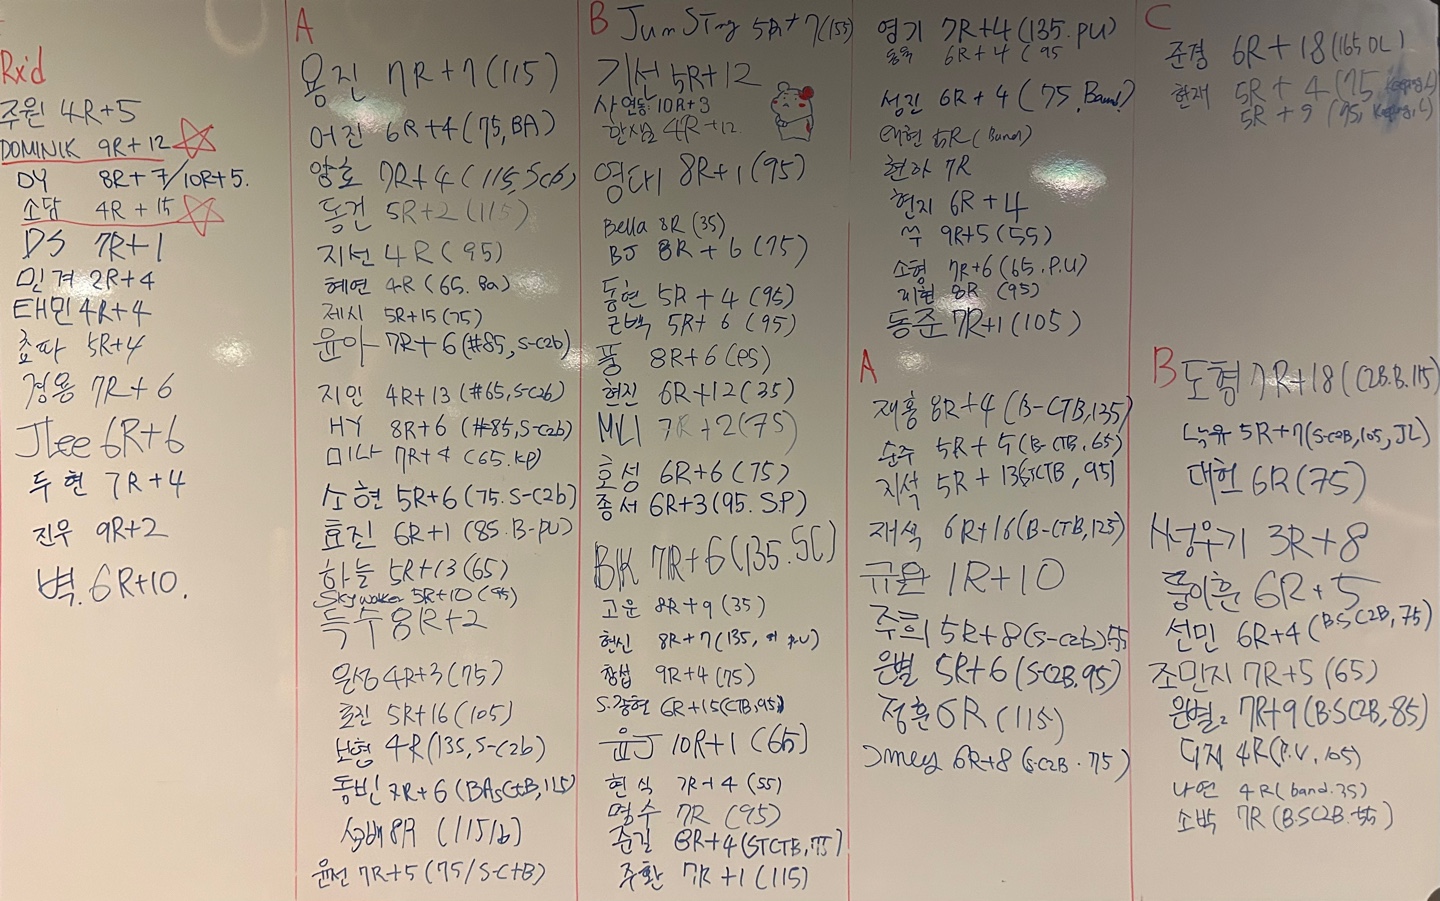 Rx'd
주원 4R+5
DOMINIK 9R+12
DY 8R+7/10R+5.
소담 4R+15
DS 7R+1
민경 2R+4
태민 4R+4
쵸파 5R+4
경용 7R+6
JLee 6R+6
두현 7R+4
진우 9R+2
벽. 6R+10.
A
용진 7R+7(115)
어진 6R+4(75,BA)
양호 7R+4(115,Scb)
동건 5R+2(115)
지선 4R(95)
혜연 4R(65.Ba)
제시 5R+15(75)
윤아 7R+6(#85,S-C2b)
지인 4R+13(#65,S-C2b)
HY 8R+6(#85,S-C2b)
미나 7R+4(65.KP)
소현 5R+6(75.S-C2b)
효진 6R+1(85.B-PU)
하늘 5R+13(65)
Skywalker 5R+10(95)
득수 8R+2
윤성 4R+3(75)
료진 5R+16(105)
보형 4R(135,S-C2b)
동빈 7R+6(BAsCtB,115)
8R(115/b)
윤선 7R+5(75/S-CtB)
B
JunSTmg 5R+7(155)
기선 5R+12
사연동: 10R+3
한사님 4R+12
영태 8R+1(95)
Bella 8R(35)
BJ 8R+6(75)
동현 5R+4(95)
근백 5R+6(95)
풍 8R+6(95)
현진 6R+12(35)
MLI 7R+2(75)
호성 6R+6(75)
종서 6R+3(95.S.P)
BK 7R+6(135.SC)
고운 8R+9(35)
현신 8R+7(135, PU)
창섭 9R+4(75)
S.종현 6R+15(CTB,95)
윤J 10R+1(65)
현식 7R+4(55)
명수 7R(95)
준길 8R+4(STCTB,75)
주환 7R+1(115)
영기 7R+4(135.PU)
동욱 6R+4(95
성진 6R+4(75.Band)
태현 5R(Band)
현아 7R
현지 6R+4
쑤 9R+5(55)
소형 7R+6(65.P.U)
지현 8R(95)
동준 7R+1(105)
A
재홍 8R+4(B-CTB,135)
순주 5R+5(B-CTB.65)
지석 5R+13(SCTB,95)
재석 6R+16(B-CTB,125)
규완 1R+10
주희 5R+8(S-C2b)55
은별 5R+6(S-C2B.95)
정훈 6R(115)
Jmey 6R+8(S-C2B.75)
C
준경 6R+18(165DL)
현재 5R+4(75
5R+9(95,
B
도형 7R+18(C2B.B.115)
녹유 5R+7(S-C2B,105,JL)
대현 6R(75)
사성우기 3R+8
동이훈 6R+5
선민 6R+4(B-SC2B,75)
조민지 7R+5(65)
은별2 7R+9(B-SC2B,85)
디지 4R(P.V.105)
나연 4R(band.35)
소박 7R(B-SC2B.55)